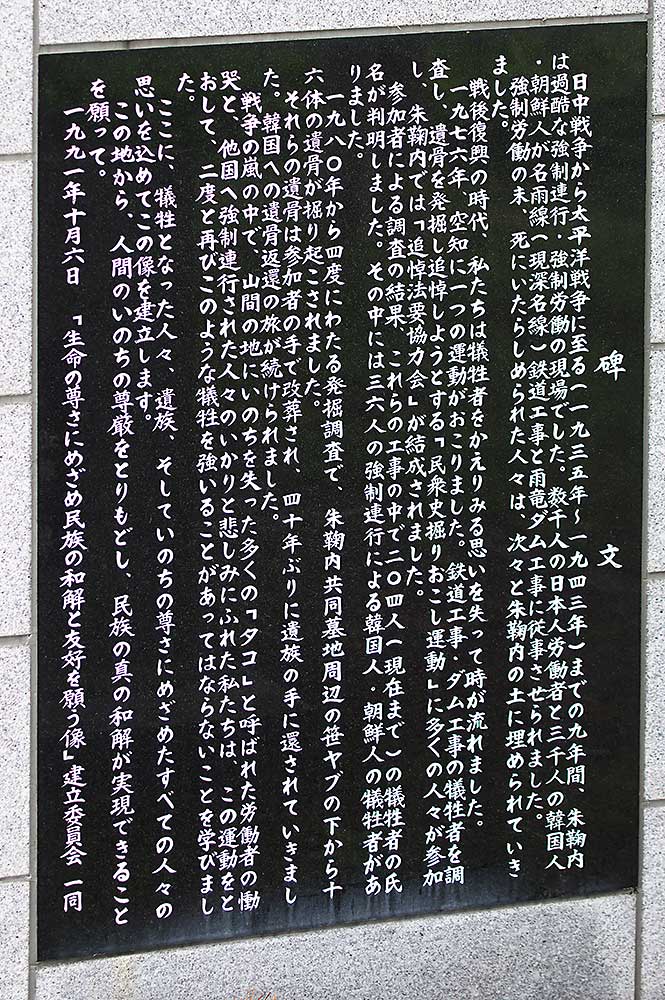 碑文
日中戦争から太平洋戦争に至る(一九三五年〜一九四三年)までの九年間、朱鞠内
は過酷な強制連行・強制労働の現場でした。数千人の日本人労働者と三千人の韓国人
・朝鮮人が名雨線(現深名線)鉄道工事と雨竜ダム工事に従事させられました。
強制労働の末、死にいたらしめられた人々は、次々と朱鞠内の土に埋められていき
ました。
戦後復興の時代、私たちは犠牲者をかえりみる思いを失って時が流れました。
一九七六年、空知に一つの運動がおこりました。鉄道工事・ダム工事の犠牲者を調
査し、遺骨を発掘し追悼しようとする「民衆史掘りおこし運動」に多くの人々が参加
し、朱鞠内では「追悼法要協力会」が結成されました。
参加者による調査の結果、これらの工事の中で二〇四人(現在まで)の犠牲者の氏
名が判明しました。その中には三六人の強制連行による韓国人・朝鮮人の犠牲者があ
りました。
一九八〇年から四度にわたる発掘調査で、朱鞠内共同墓地周辺の笹ヤブの下から十
六体の遺骨が掘り起こされました。
それらの遺骨は参加者の手で改葬され、四十年ぶりに遺族の手に還されていきまし
た。韓国への遺骨返還の旅が続けられました。
戦争の嵐の中で、山間の地にいのちを失った多くの「タコ」と呼ばれた労働者の慟
哭と、他国へ強制連行された人々のいかりと悲しみにふれた私たちは、この運動をと
おして、二度と再びこのような犠牲を強いることがあってはならないことを学びまし
た。
ここに、犠牲となった人々、遺族、そしていのちの尊さにめざめたすべての人々の
思いを込めてこの像を建立します。
この地から、人間のいのちの尊厳をとりもどし、民族の真の和解が実現できること
を願って。
一九九一年十月六日 「生命の尊さにめざめ民族の和解と友好を願う像」建立委員会 一同